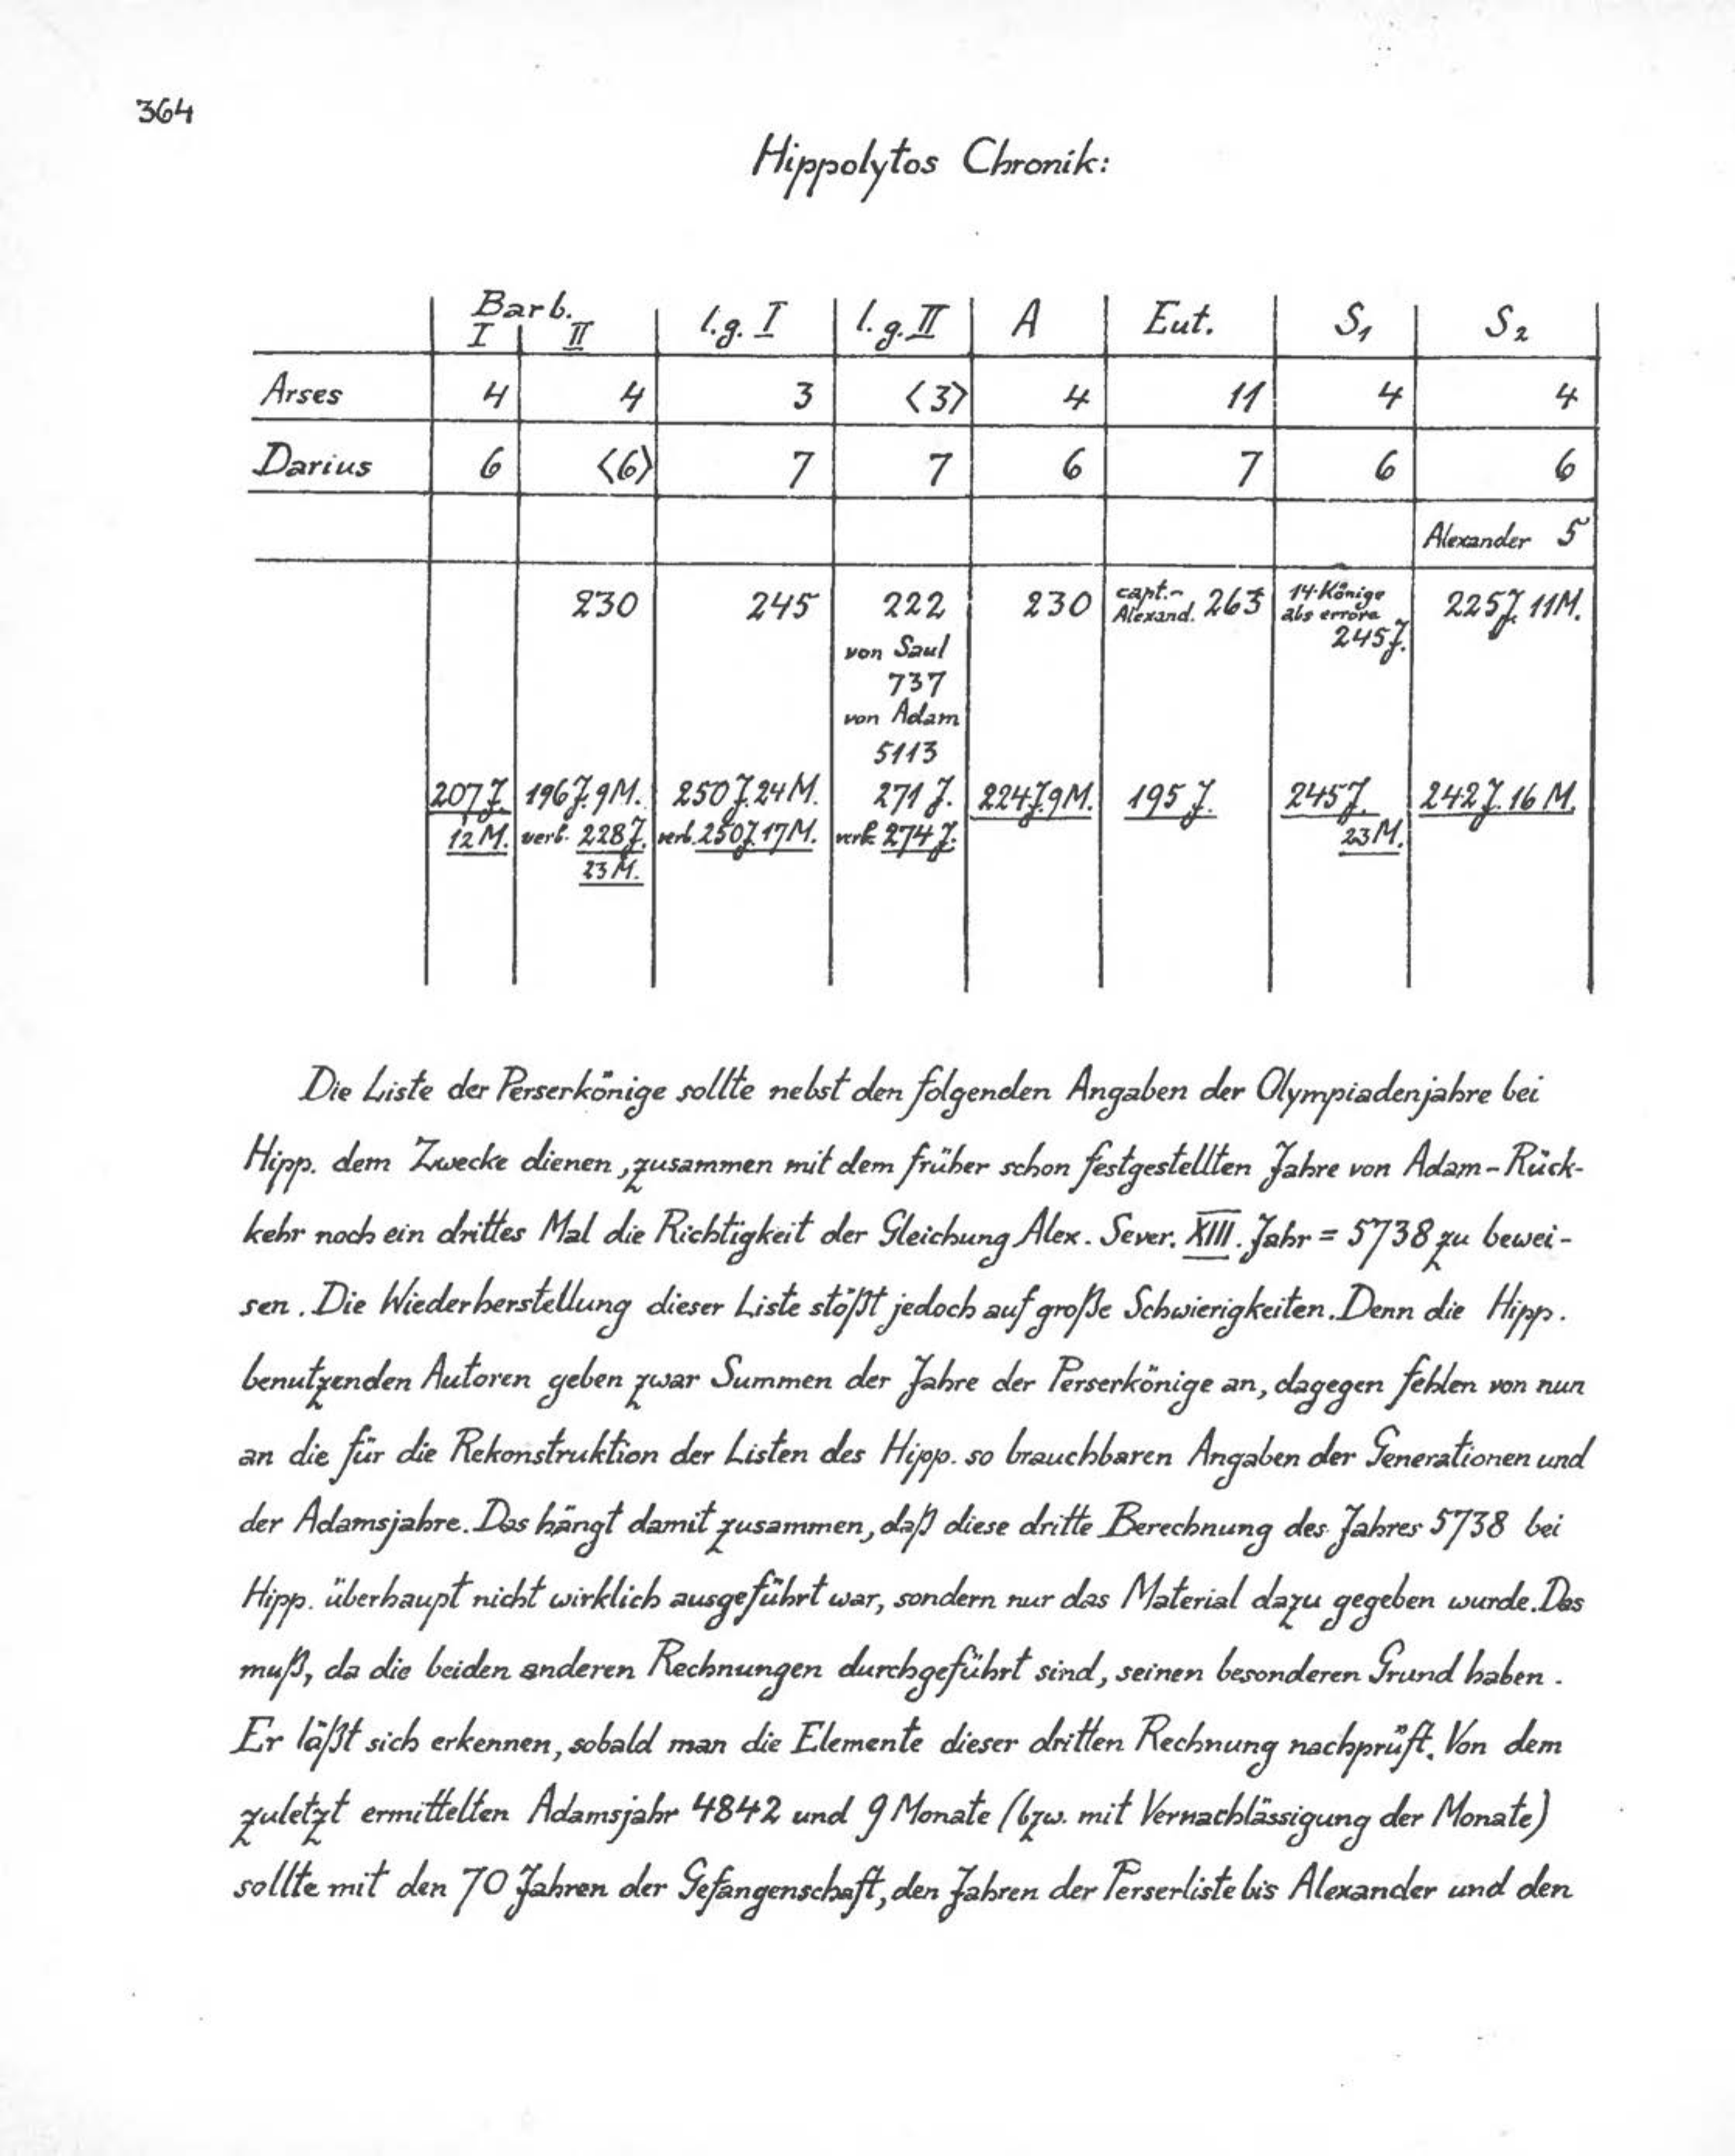 364
Hippolytos Chronik:
Barb. I II l.g. I l.g. II A Eut. S1 S2
Arses 4 4 3 <3> 4 11 4 4
Darius 6 <6> 7 7 6 7 6 6
Alexander 5
230 245 222 230 capt.- Alexand. 263 14 Könige abs errore 245 J. 225 J. 11 M.
von Saul
737
von Adam
5113
207 J. 196 J. 9 M. 250 J. 24 M. 271 J. 224 J. 9 M. 195 J. 245 J. 242 J. 16 M.
12 M. verb. 228 J. verb. 250 J. 17 M. verb. 274 J. 23 M.
23 M.
Die Liste der Perserkönige sollte nebst den folgenden Angaben der Olympiadenjahre bei
Hipp. dem Zwecke dienen, zusammen mit dem früher schon festgestellten Jahre von Adam-Rück-
kehr noch ein drittes Mal die Richtigkeit der Gleichung Alex. Sever. XIII. Jahr = 5738 zu bewei-
sen. Die Wiederherstellung dieser Liste stößt jedoch auf große Schwierigkeiten. Denn die Hipp.
benutzenden Autoren geben zwar Summen der Jahre der Perserkönige an, dagegen fehlen von nun
an die für die Rekonstruktion der Listen des Hipp. so brauchbaren Angaben der Generationen und
der Adamsjahre. Das hängt damit zusammen, daß diese dritte Berechnung des Jahres 5738 bei
Hipp. überhaupt nicht wirklich ausgeführt war, sondern nur das Material dazu gegeben wurde. Das
muß, da die beiden anderen Rechnungen durchgeführt sind, seinen besonderen Grund haben.
Er läßt sich erkennen, sobald man die Elemente dieser dritten Rechnung nachprüft. Von dem
zuletzt ermittelten Adamsjahr 4842 und 9 Monate (bzw. mit Vernachlässigung der Monate)
sollte mit den 70 Jahren der Gefangenschaft, den Jahren der Perserliste bis Alexander und den